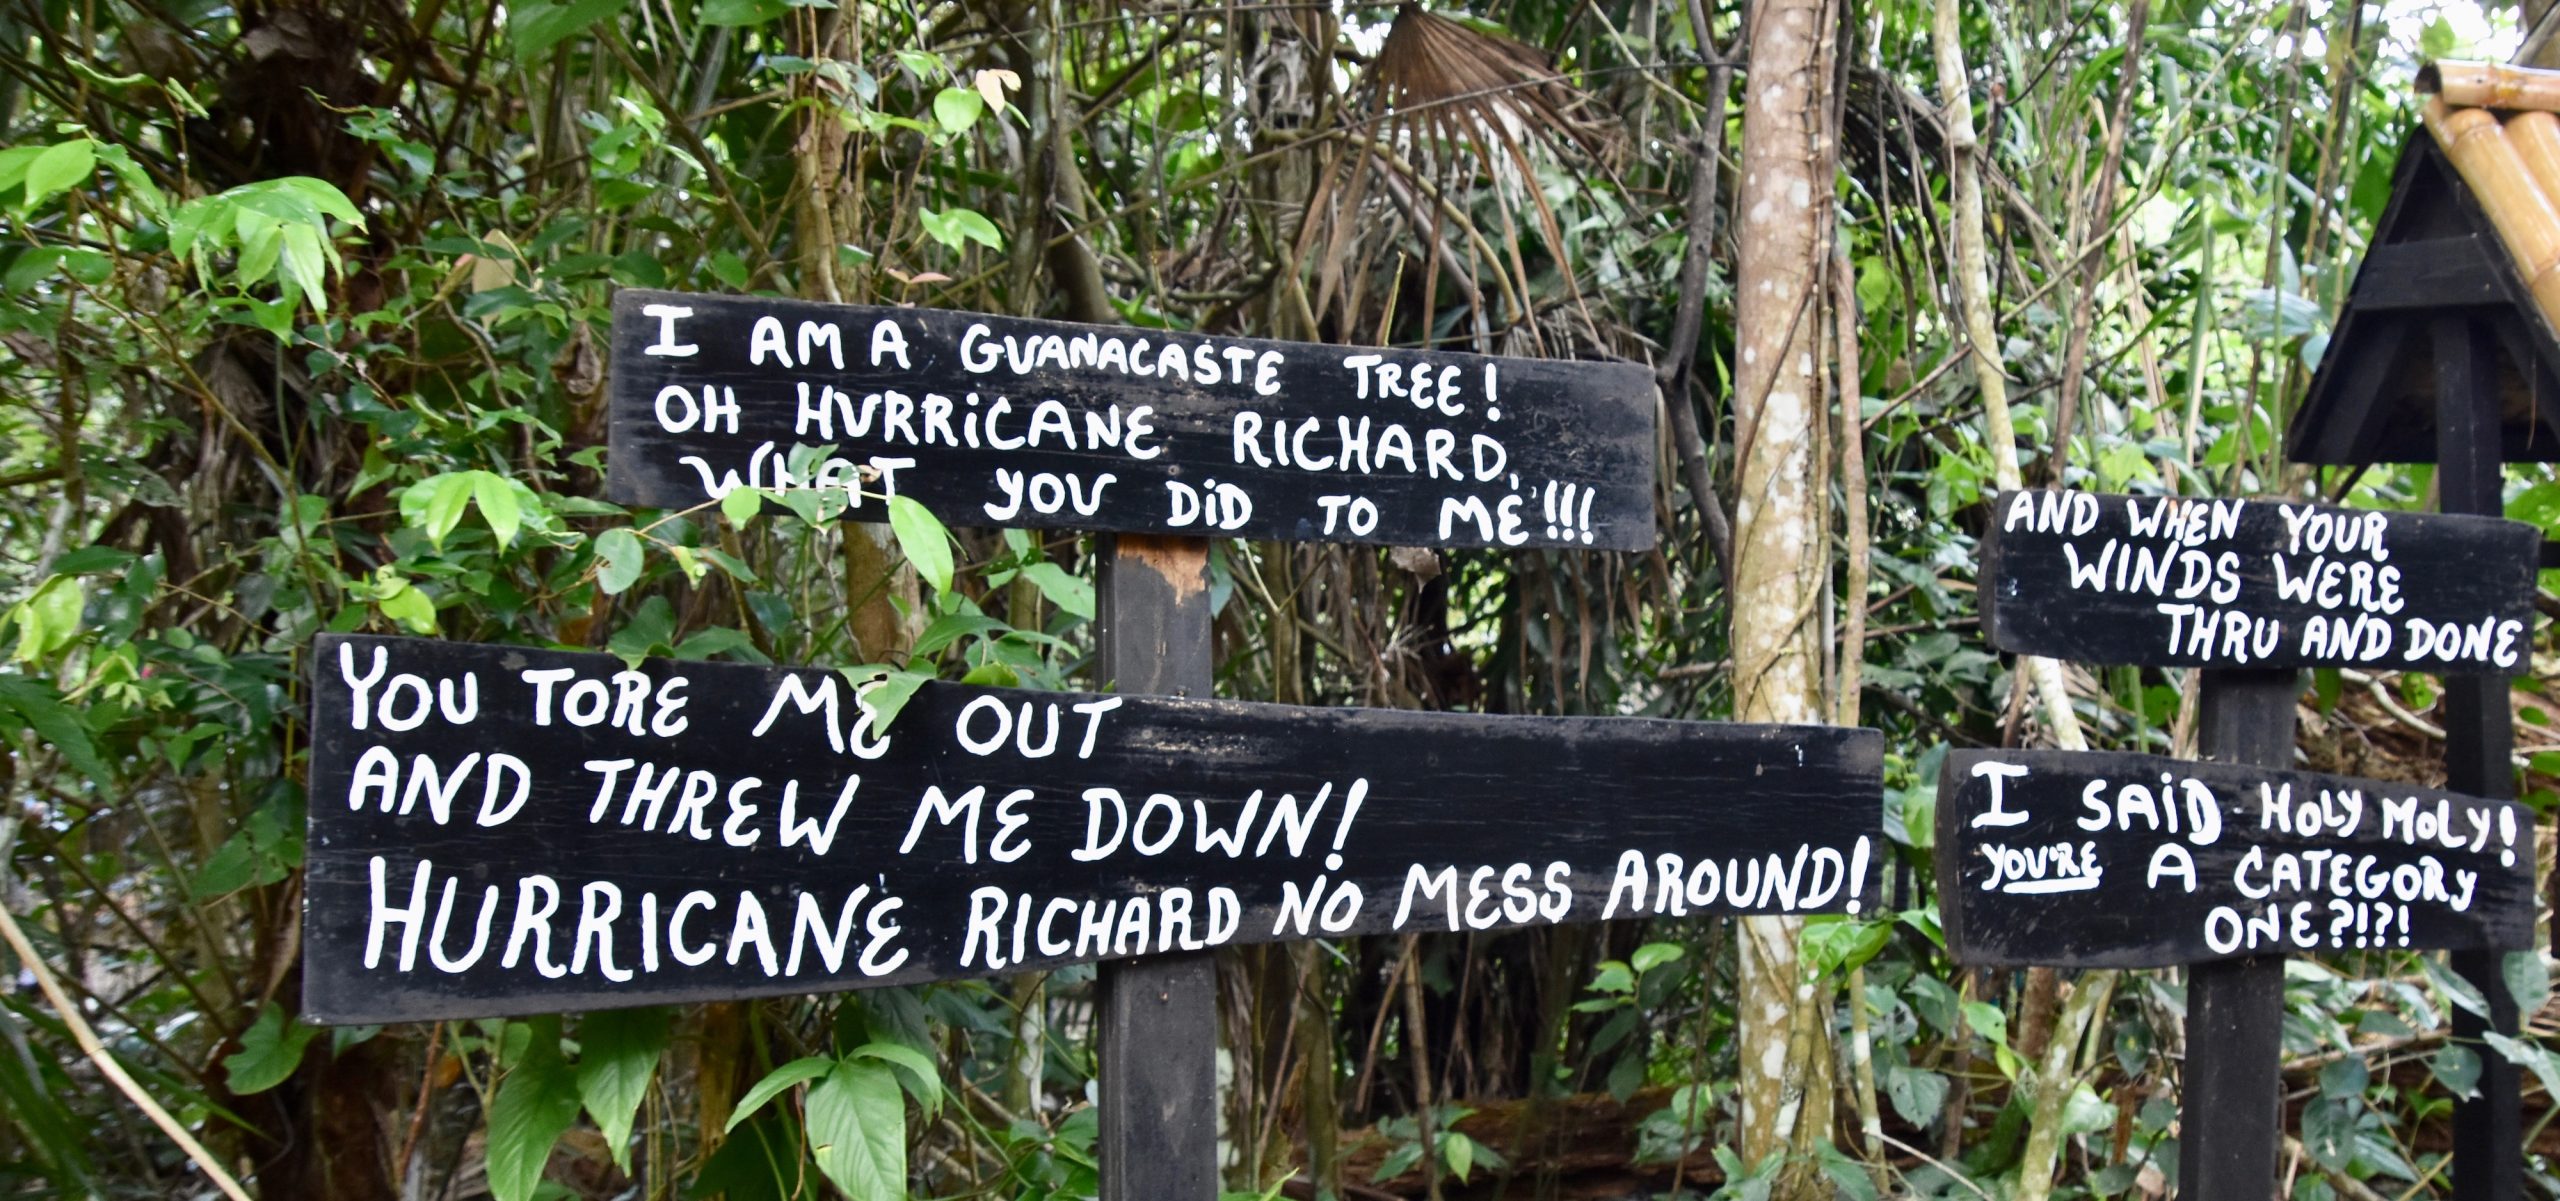 I AM A GUANACASTE TREE!
OH HURRiCANE RICHARD,
WHAT YOU DiD TO ME!!!
YOU TORE ME OUT
AND THREW ME DOWN!
HURRICANE RICHARD NO MESS AROUND!
AND WHEN YOUR
WINDS WERE
THRU AND DONE
I SAiD HOLY MOLY!
YOU'RE A CATEGORY
ONE?!?!